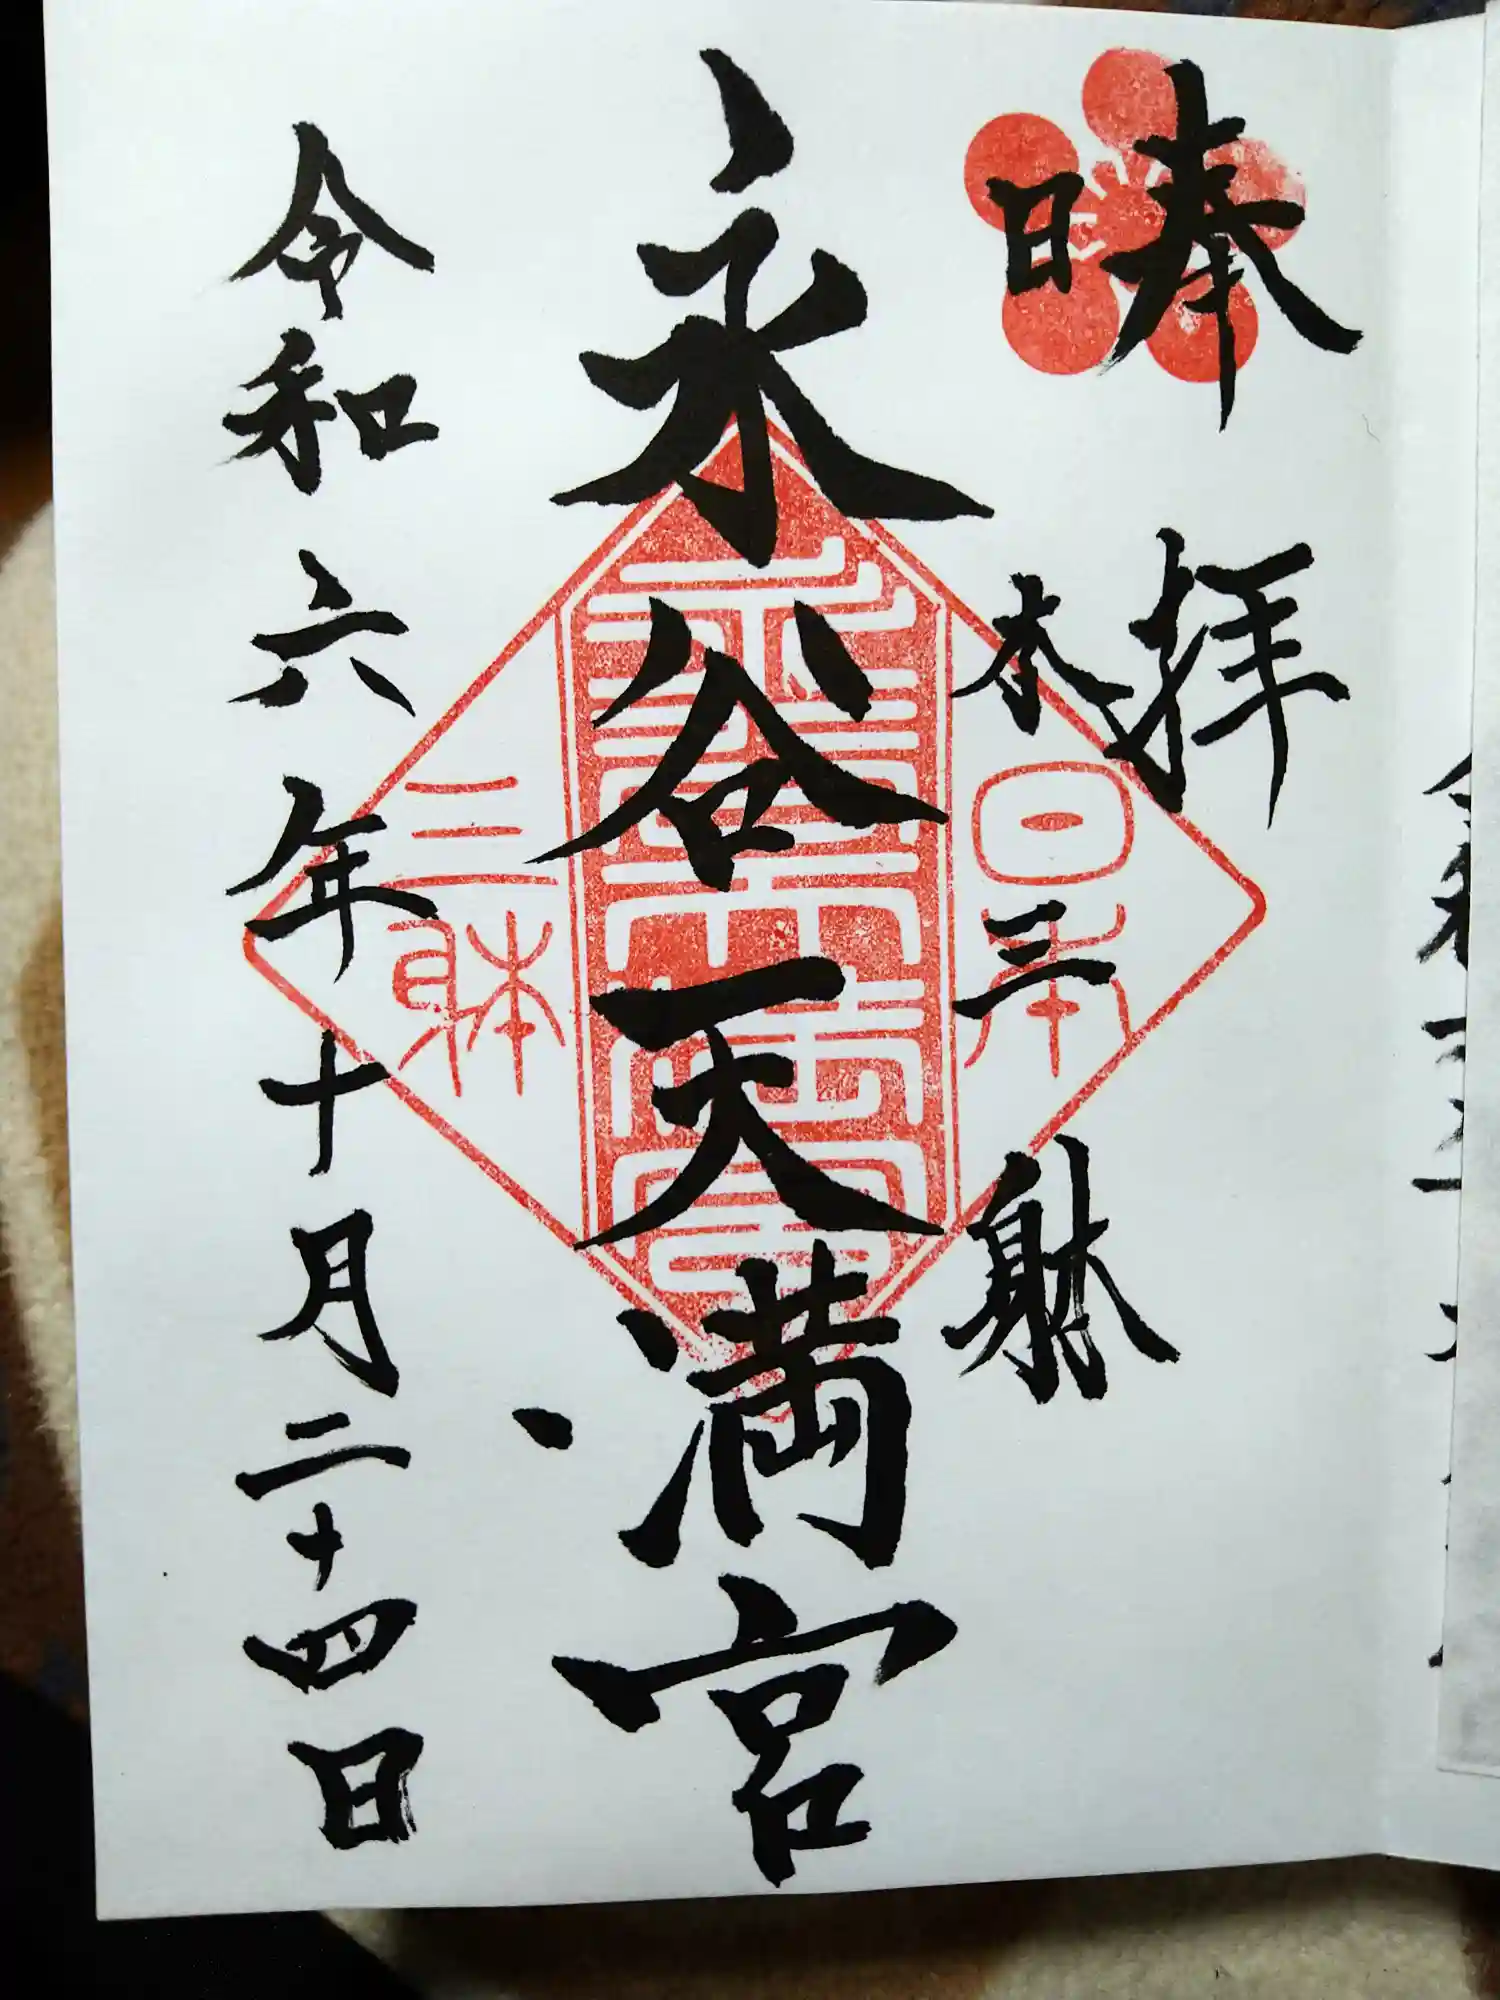 奉拝
日本三躰
永谷天満宮
令和六年十月二十四日
日本
永谷天満宮
三躰